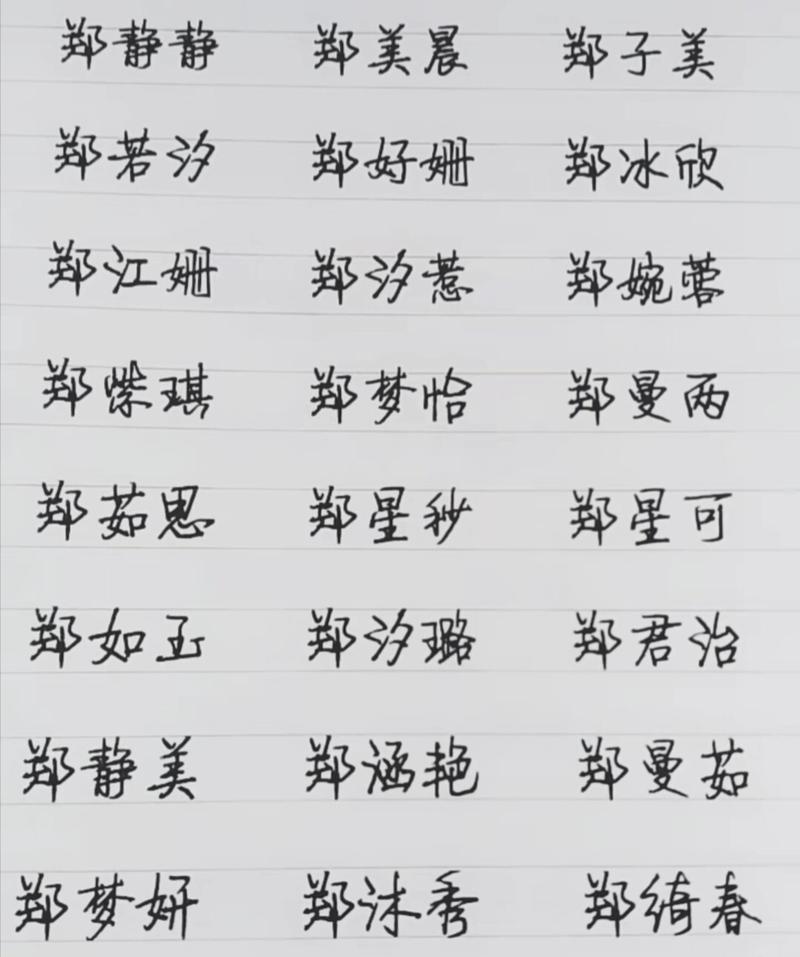 郑静静 郑美晨 郑子美
郑若汐 郑好姗 郑冰欣
郑江姗 郑汐惹 郑婉蓉
郑紫琪 郑梦怡 郑曼两
郑茹思 郑星秒 郑星可
郑如玉 郑汐璐 郑君治
郑静美 郑涵艳 郑曼茹
郑梦妍 郑沐秀 郑绮春